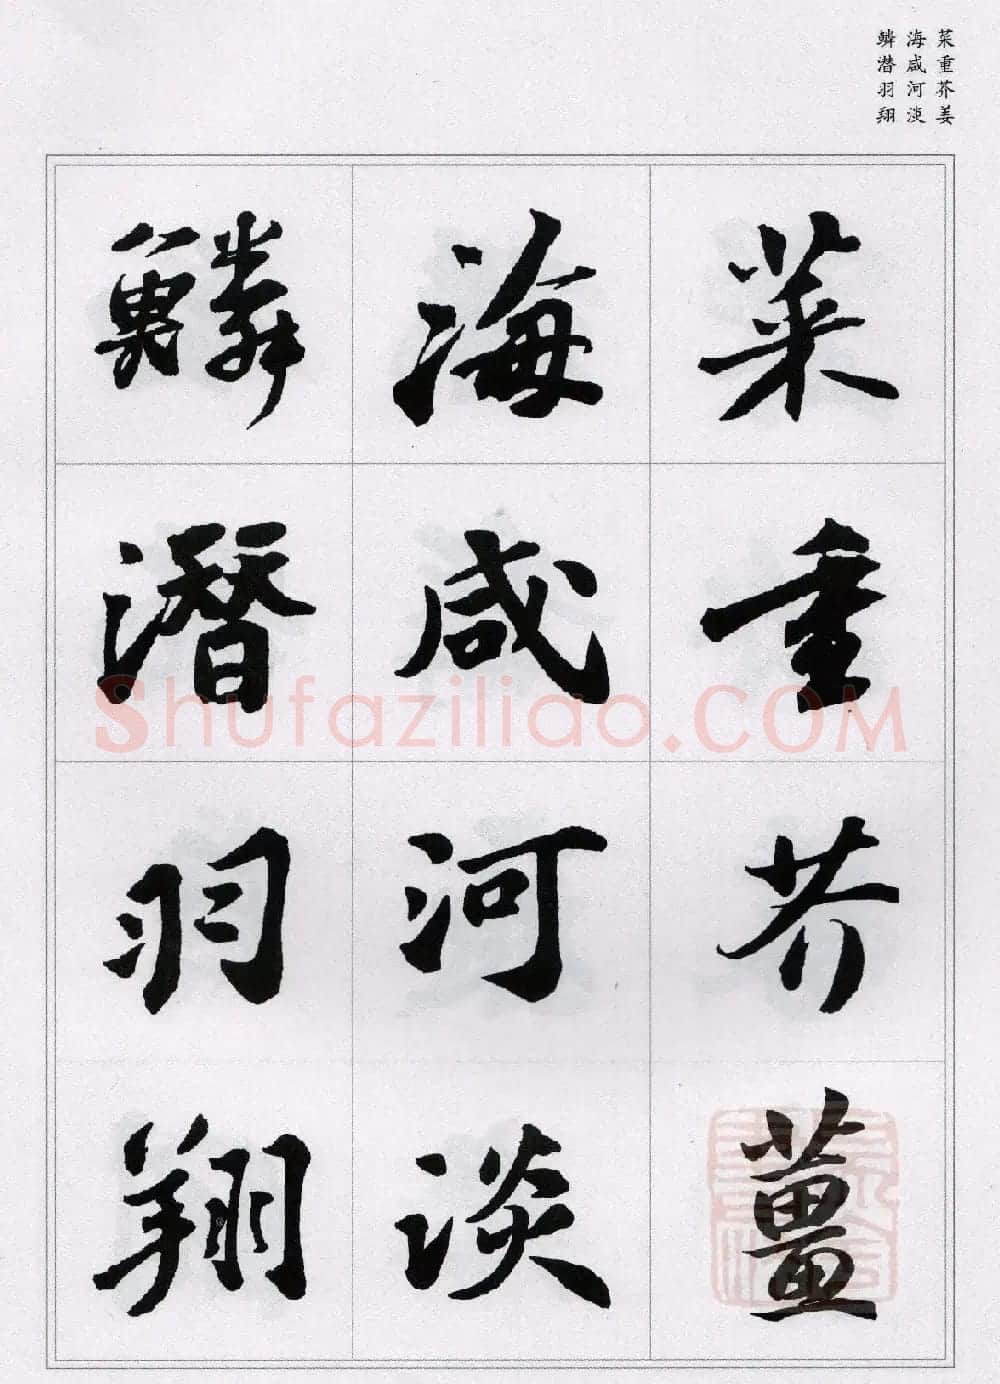 菜重芥姜
海咸河淡
鳞潜羽翔
菜重芥薑
海咸河淡
鱗潛羽翔
Shufaziliao.COM